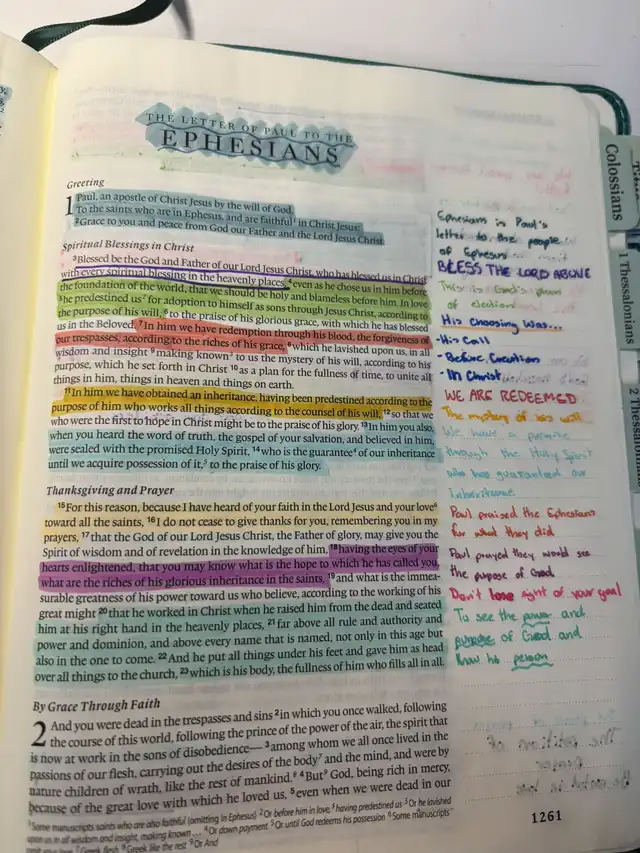 THE LETTER OF PAUL TO THE
EPHESIANS
Greeting
1 Paul, an apostle of Christ Jesus by the will of God,
To the saints who are in Ephesus, and are faithful¹ in Christ Jesus:
²Grace to you and peace from God our Father and the Lord Jesus Christ.
Spiritual Blessings in Christ
³Blessed be the God and Father of our Lord Jesus Christ, who has blessed us in Christ
with every spiritual blessing in the heavenly places, ⁴even as he chose us in him before
the foundation of the world, that we should be holy and blameless before him. In love
⁵he predestined us² for adoption to himself as sons through Jesus Christ, according to
the purpose of his will, ⁶to the praise of his glorious grace, with which he has blessed
us in the Beloved. ⁷In him we have redemption through his blood, the forgiveness of
our trespasses, according to the riches of his grace, ⁸which he lavished upon us, in all
wisdom and insight ⁹making known³ to us the mystery of his will, according to his
purpose, which he set forth in Christ ¹⁰as a plan for the fullness of time, to unite all
things in him, things in heaven and things on earth.
¹¹In him we have obtained an inheritance, having been predestined according to the
purpose of him who works all things according to the counsel of his will, ¹²so that we
who were the first to hope in Christ might be to the praise of his glory. ¹³In him you also,
when you heard the word of truth, the gospel of your salvation, and believed in him,
were sealed with the promised Holy Spirit, ¹⁴who is the guarantee⁴ of our inheritance
until we acquire possession of it,⁵ to the praise of his glory.
Thanksgiving and Prayer
¹⁵For this reason, because I have heard of your faith in the Lord Jesus and your love⁶
toward all the saints, ¹⁶I do not cease to give thanks for you, remembering you in my
prayers, ¹⁷that the God of our Lord Jesus Christ, the Father of glory, may give you the
Spirit of wisdom and of revelation in the knowledge of him, ¹⁸having the eyes of your
hearts enlightened, that you may know what is the hope to which he has called you,
what are the riches of his glorious inheritance in the saints, ¹⁹and what is the immea-
surable greatness of his power toward us who believe, according to the working of his
great might ²⁰that he worked in Christ when he raised him from the dead and seated
him at his right hand in the heavenly places, ²¹far above all rule and authority and
power and dominion, and above every name that is named, not only in this age but
also in the one to come. ²²And he put all things under his feet and gave him as head
over all things to the church, ²³which is his body, the fullness of him who fills all in all.
By Grace Through Faith
2 And you were dead in the trespasses and sins ²in which you once walked, following
the course of this world, following the prince of the power of the air, the spirit that
is now at work in the sons of disobedience—³among whom we all once lived in the
passions of our flesh, carrying out the desires of the body⁷ and the mind, and were by
nature children of wrath, like the rest of mankind.⁸ ⁴But⁹ God, being rich in mercy,
because of the great love with which he loved us, ⁵even when we were dead in our
¹Some manuscripts saints who are also faithful (omitting in Ephesus) ²Or before him in love, ³having predestined us ³Or he lavished
upon us in all wisdom and insight, making known ... ⁴Or down payment ⁵Or until God redeems his possession ⁶Some manuscripts
⁷Greek flesh ⁸Greek like the rest ⁹Or And
Ephesians is Paul's
letter to the people
of Ephesus
BLESS THE LORD ABOVE
This is God's plan
of election
His Choosing Was...
- His Call
- Before Creation
- In Christ
WE ARE REDEEMED
The mystery of his will
We have a promise
through the Holy Spirit
who has guaranteed our
inheritance
Paul praised the Ephesians
for what they did
Paul prayed they would see
the purpose of God
Don't lose sight of your goal
To see the power and
purpose of God and
know his person
1261
Colossians
1 Thessalonians
2 Thessalonians